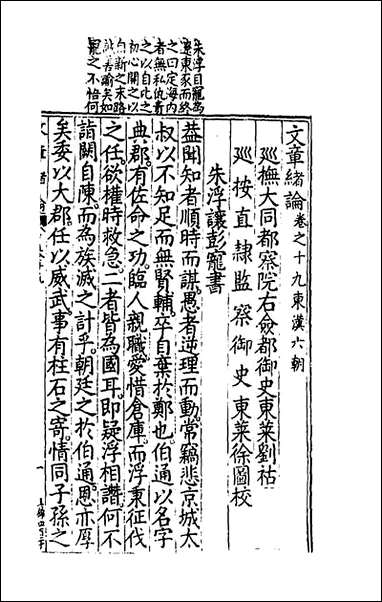 文章緒論卷之十九東漢六朝
廵撫大同都察院右僉都御史東萊劉祜
廵按直隷監察御史東萊徐圖校
朱浮讓彭寵書
葢聞知者順時而謀愚者逆理而動常竊悲京城太
叔以不知足而無賢輔卒自棄於鄭也伯通以名字
典郡有佐命之功臨人親職愛惜倉庫而浮秉征伐
之任欲權時救急二者皆為國耳即疑浮相譖何不
詣闕自陳而為族滅之計乎朝廷之於伯通恩亦厚
矣委以大郡任以威武事有柱石之寄情同子孫之
朱浮目寵為
遼東豕而終
之曰定海内
者無私讐責
之以自此之
初心開之以
自新之末路
此善諭矣如
寵之不悟何
文章緒論
一